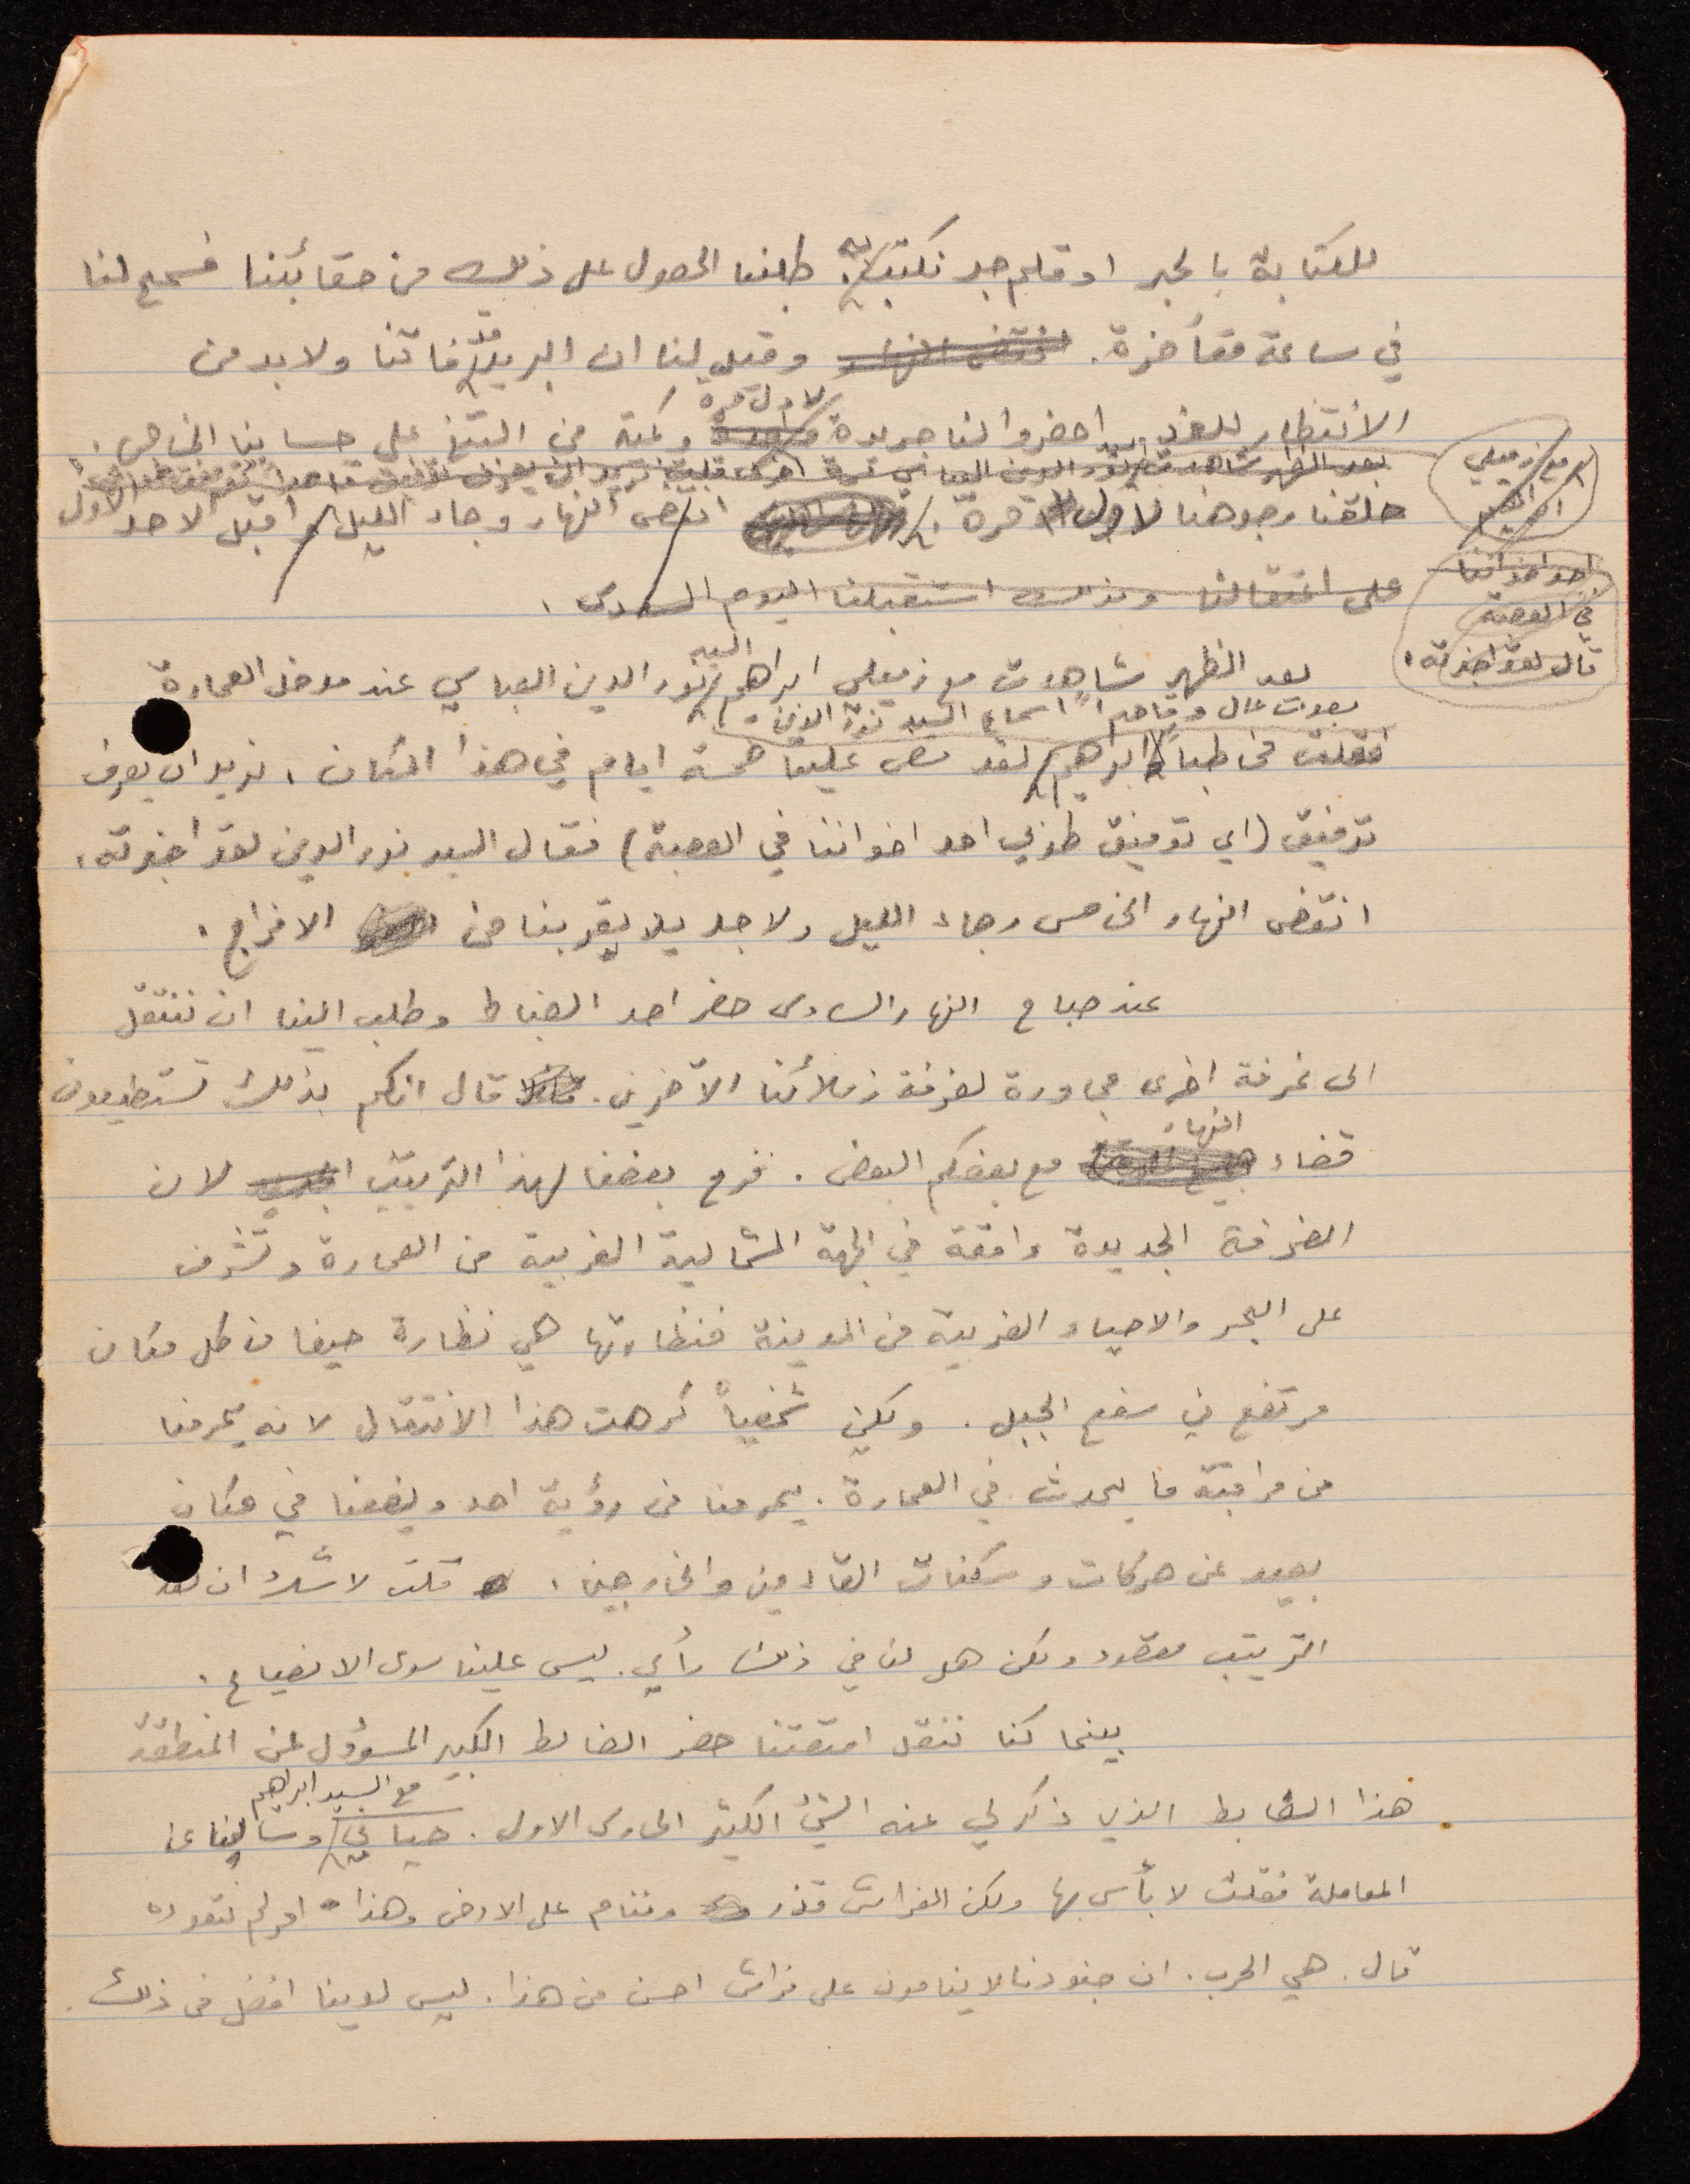 للكتابة بالحبر او قلم حبر نكتب به. طلبنا الحصول على ذلك من حقائبنا فسمح لنا
في ساعة متأخرة. وقيل لنا ان البريد قد فاتنا ولا بد من
لاول مرة
الانتظار للغد. احضروا لنا جريدة وكمية من التتن على حسابنا الخاص.
بعد الظهر شاهدت السيد نور الدين العباسي مرة اخرى
حلقنا وجوهنا لاول مرة. انقضى النهار وجاء الليل واقبل الاحد الاول
على اعتقالنا وبذلك استقبلنا اليوم السادس.
مع زميلي
ابراهيم
احد اخواننا
في العصبة
قال لقد اخبرته.
بعد الظهر شاهدت مع زميلي ابراهيم السيد نور الدين العباسي عند مدخل العمارة
بصوت عال وقاصداً اسماع السيد نور الدين.
فقلت مخاطباً ابراهيم لقد مضى علينا خمسة ايام في هذا المكان. نريد ان يعرف
توفيق (اي توفيق طوبي احد اخواننا في العصبة) فقال السيد نور الدين لقد اخبرته.
انقضى النهار الخامس وجاء الليل ولا جديد يقربنا من الافراج.
عند صباح النهار السادس حضر احد الضباط وطلب الينا ان ننتقل
الى غرفة اخرى مجاورة لغرفة زملائنا الآخرين. قال انكم بذلك تستطيعون
النهار
قضاء مع بعضكم البعض. فرح بعضنا لهذا الترتيب لان
الغرفة الجديدة واقعة في الجهة الشمالية الغربية من العمارة وتشرف
على البحر والاحياء الغربية من المدينة فنظارتها هي نظارة حيفا من كل مكان
مرتفع في سفح الجبل. ولكني شخصياً كرهت هذا الانتقال لانه يحرمنا
من مراقبة ما يحدث في العمارة. يحرمنا من رؤية احد ويضعنا في مكان
بعيد عن حركات وسكنات القادمين والخارجين. قلت لا شك ان هذا
الترتيب مقصود ولكن هل لنا في ذلك رأي. ليس علينا سوى الانصياع.
بينما كنا ننقل امتعتنا حضر الضابط الكبير المسؤول عن المنطقة
مع السيد ابراهيم
هذا الضابط الذي ذكر لي عنه الشيء الكثير الحارس الاول. حياني وسألنا عن
المعاملة فقلت لا بأس بها ولكن الفراش قذر وننام على الارض وهذا امر لم نتعوده
قال. هي الحرب. ان جنودنا لا ينامون على فراش احسن من هذا. ليس لدينا افضل من ذلك.